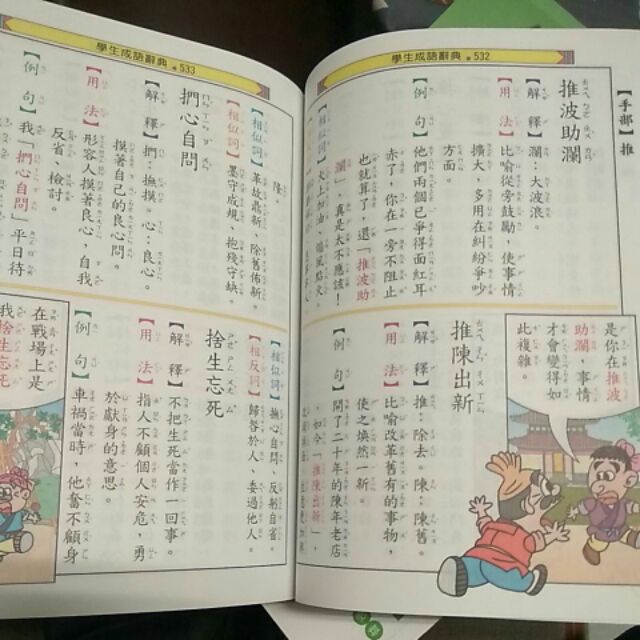 學生成語辭典 532
【手部】推
推波助瀾
【解釋】瀾:大波浪。
【用法】比喻從旁鼓勵,使事情
擴大,多用在糾紛爭吵
方面。
【例句】他們兩個已爭得面紅耳
赤了,你在一旁不阻止
也就算了,還「推波助
瀾」,真是太不應該!
【相似詞】火上加油、
是你在推波
助瀾,事情
才會變得如
此複雜。
推陳出新
【解釋】推:除去。陳:陳舊。
【用法】比喻改革舊有的事物,
使之煥然一新。
【例句】開了二十年的陳年老店
,如今「推陳出新」,
學生成語辭典 533
隆。
【相似詞】革故鼎新、除舊佈新。
【相反詞】墨守成規、抱殘守缺。
捫心自問
【解釋】捫:撫摸。心:良心。
摸著自己的良心問。
【用法】形容人摸著良心,自我
反省、檢討。
【例句】我「捫心自問」平日待
【相似詞】撫心自問、反躬自省。
【相反詞】歸咎於人、委過他人。
捨生忘死
【解釋】不把生死當作一回事。
【用法】指人不顧個人安危,勇
於獻身的意思。
【例句】車禍當時,他奮不顧身
在戰場上是
我捨生忘死